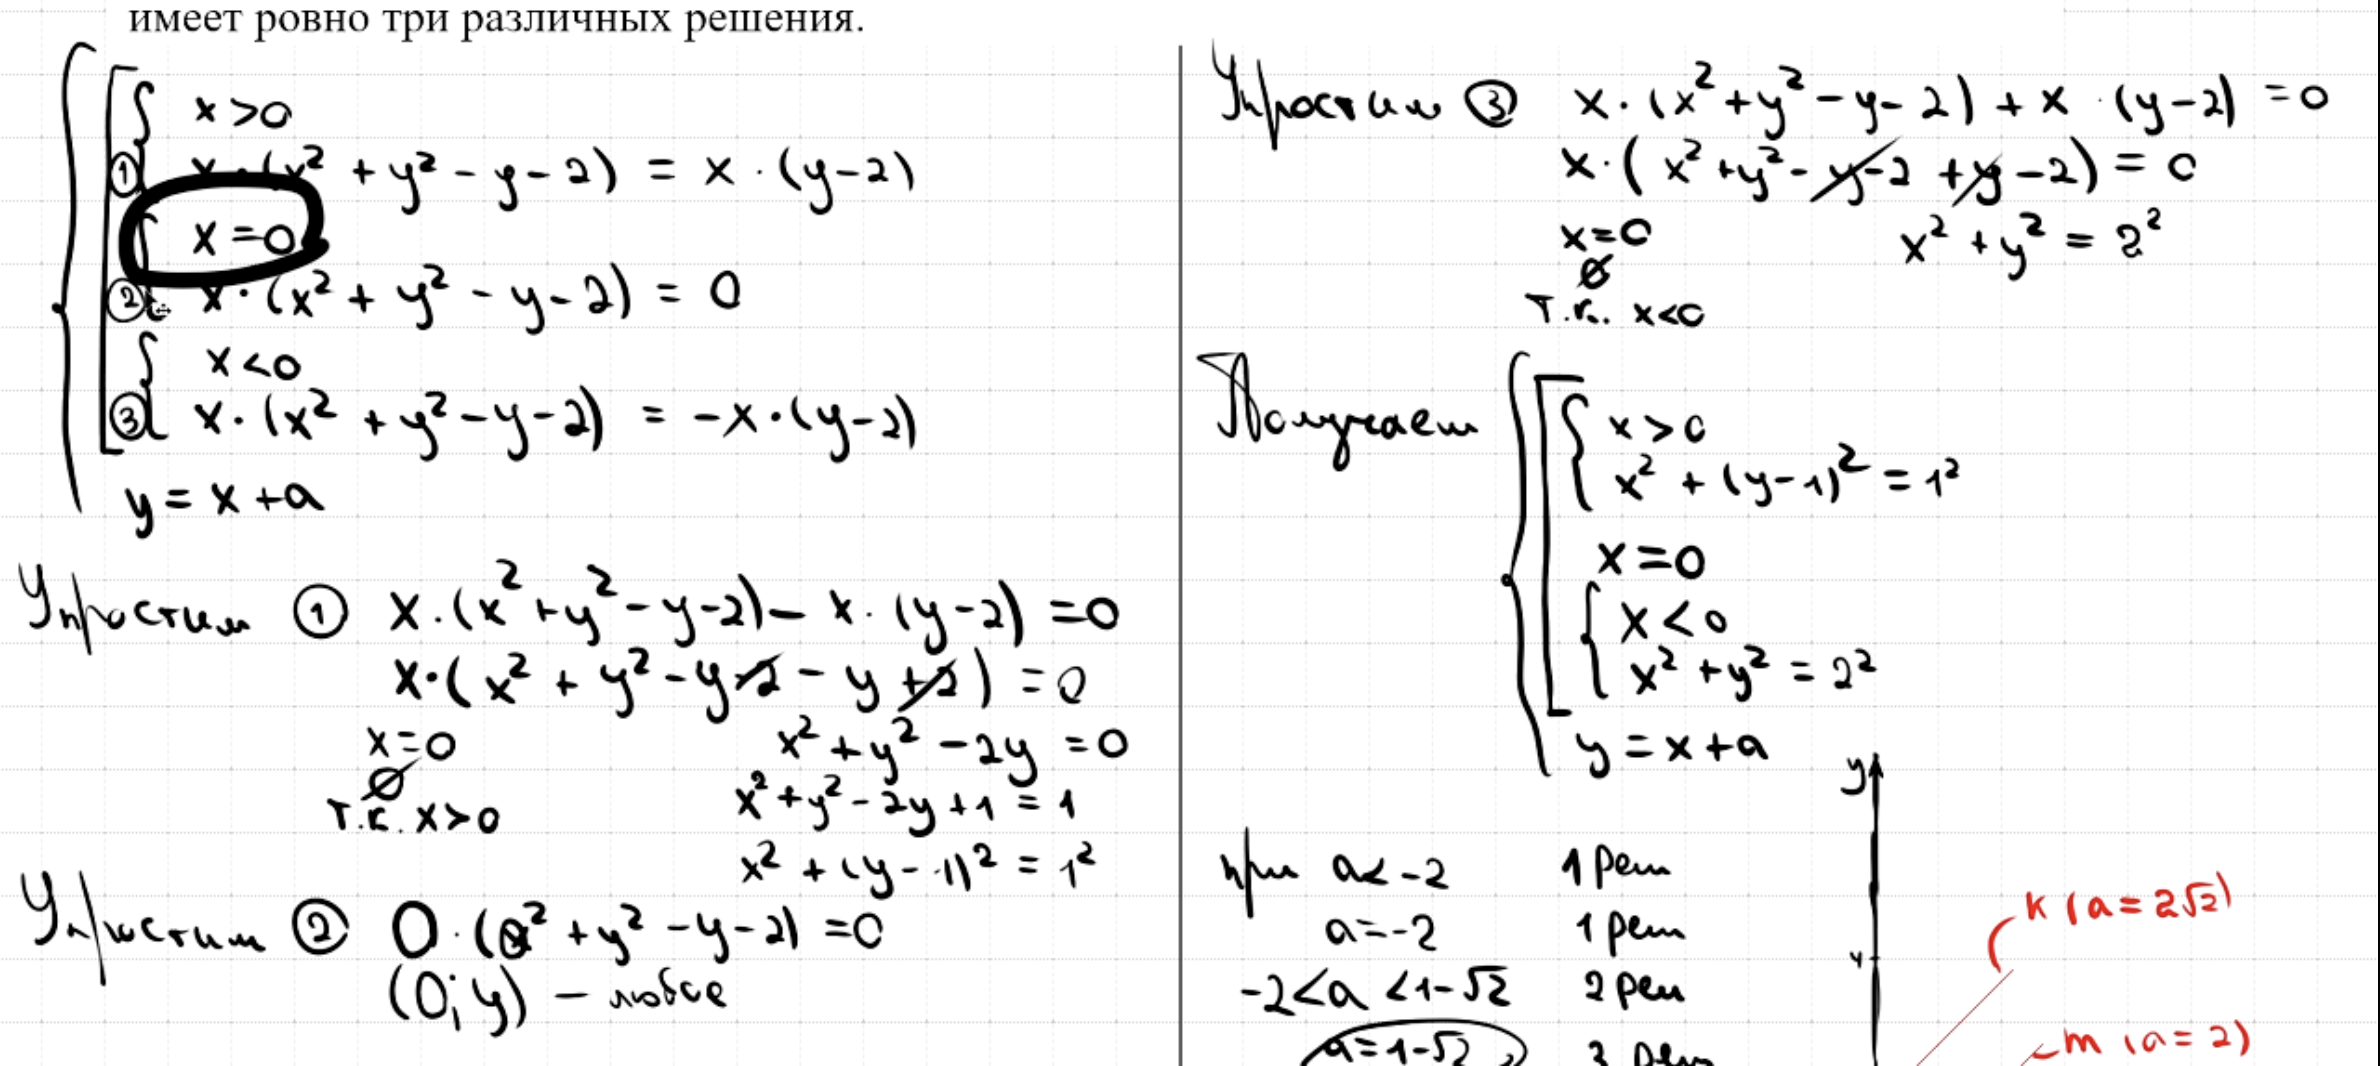 имеет ровно три различных решения.
x > 0
① x·(x² + y² - y - 2) = x·(y-2)
x = 0
② x·(x² + y² - y - 2) = 0
x < 0
③ x·(x² + y² - y - 2) = -x·(y-2)
y = x + a
Упростим ① x·(x² + y² - y - 2) - x·(y-2) = 0
x·(x² + y² - y - 2 - y + 2) = 0
x = 0
x² + y² - 2y = 0
∅
x² + y² - 2y + 1 = 1
т.к. x > 0
x² + (y - 1)² = 1²
Упростим ② 0·(0² + y² - y - 2) = 0
(0; y) - любое
Упростим ③ x·(x² + y² - y - 2) + x·(y-2) = 0
x·(x² + y² - y - 2 + y - 2) = 0
x = 0
x² + y² = 2²
∅
т.к. x < 0
Получаем
x > 0
x² + (y-1)² = 1²
x = 0
x < 0
x² + y² = 2²
y = x + a
y
при a < -2 1 реш
a = -2 1 реш
-2 < a < 1-√2 2 реш
a = 1-√2 3 реш
4
k (a = 2√2)
m (a = 2)